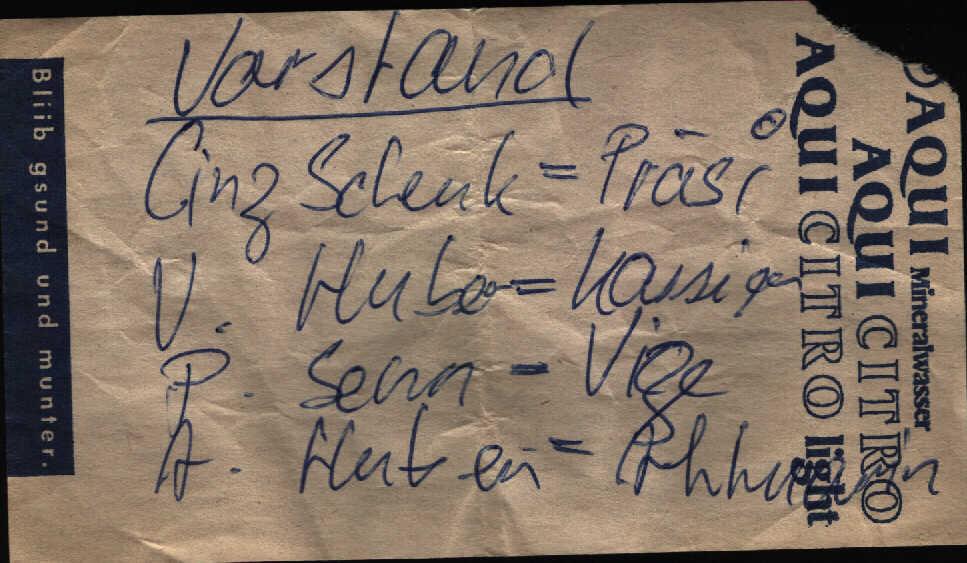 Vorstand
Cinz Schenk = Präsi
V. Huber = Kassier
P. Senn = Vize
A.
Bliib gsund und munter.
AQUI Mineralwasser
AQUI CITRO
AQUI CITRO light